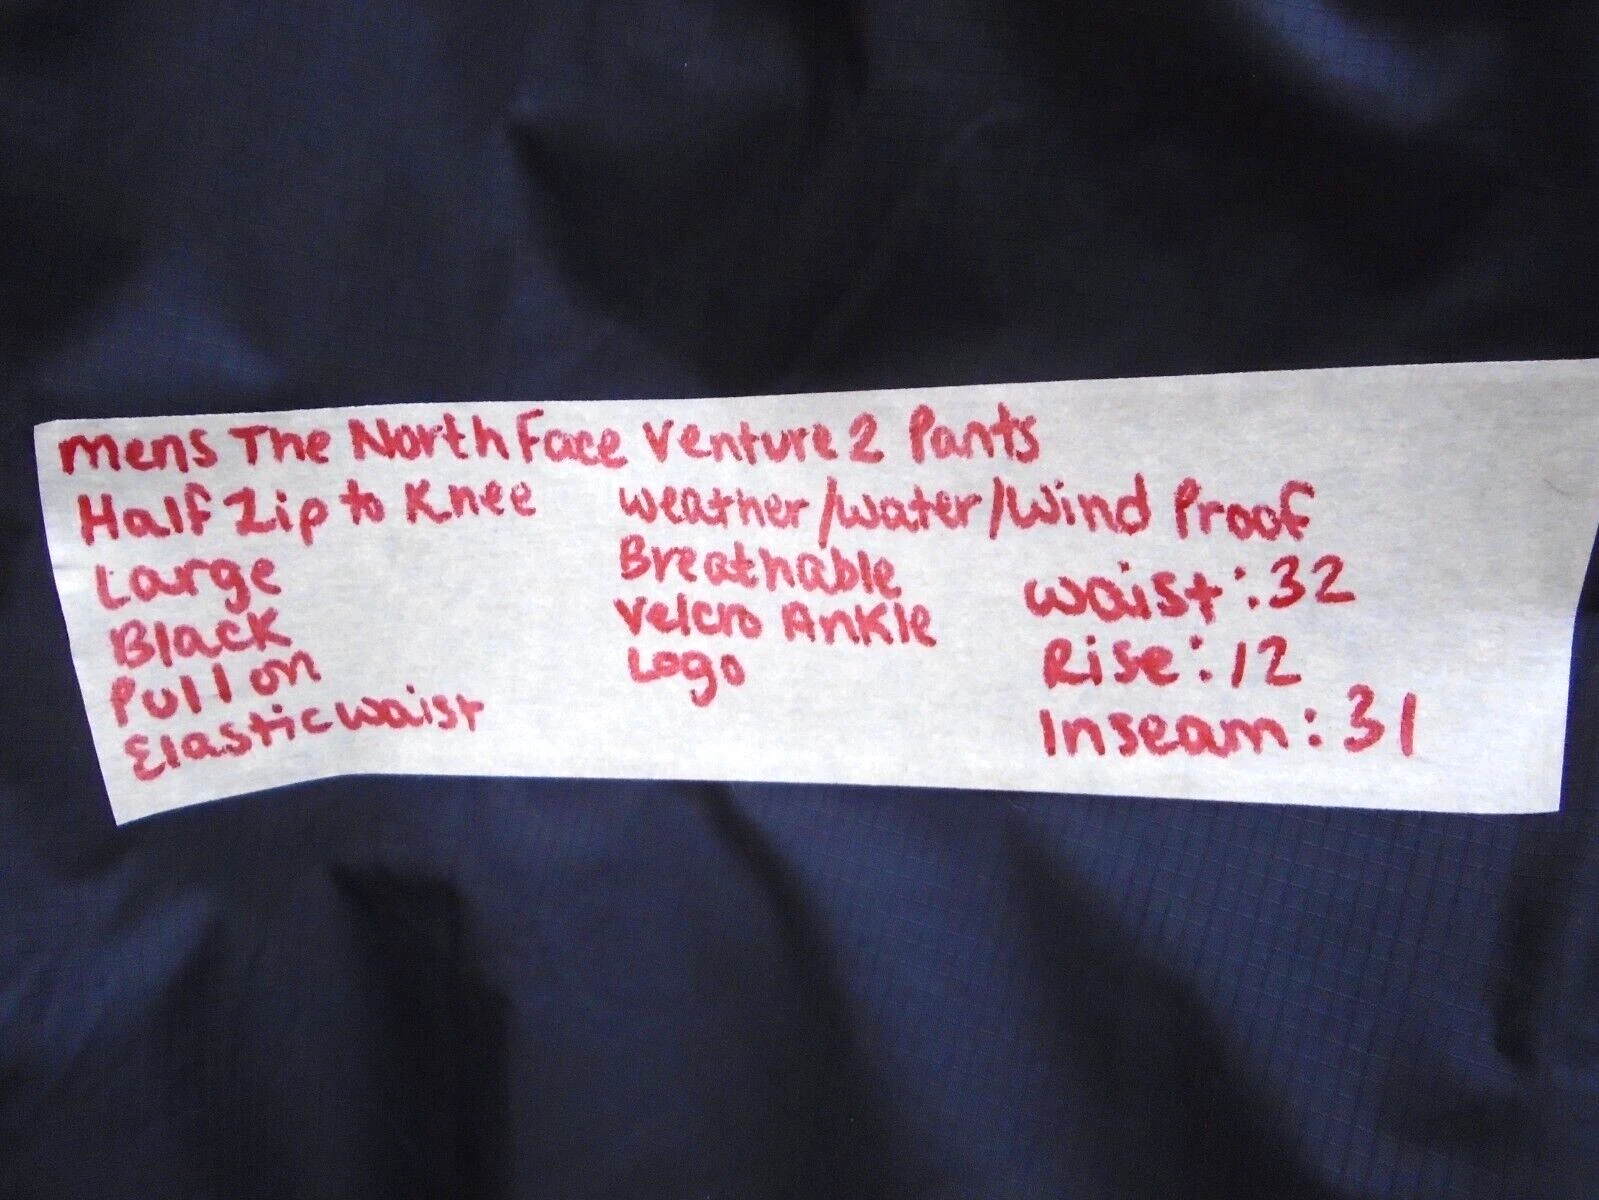 mens The North Face Venture 2 Pants
Half Zip to Knee
Large
Black
Pull on
Elastic waist
Weather/Water/Wind Proof
Breathable
Velcro Ankle
Logo
Waist: 32
Rise: 12
Inseam: 31